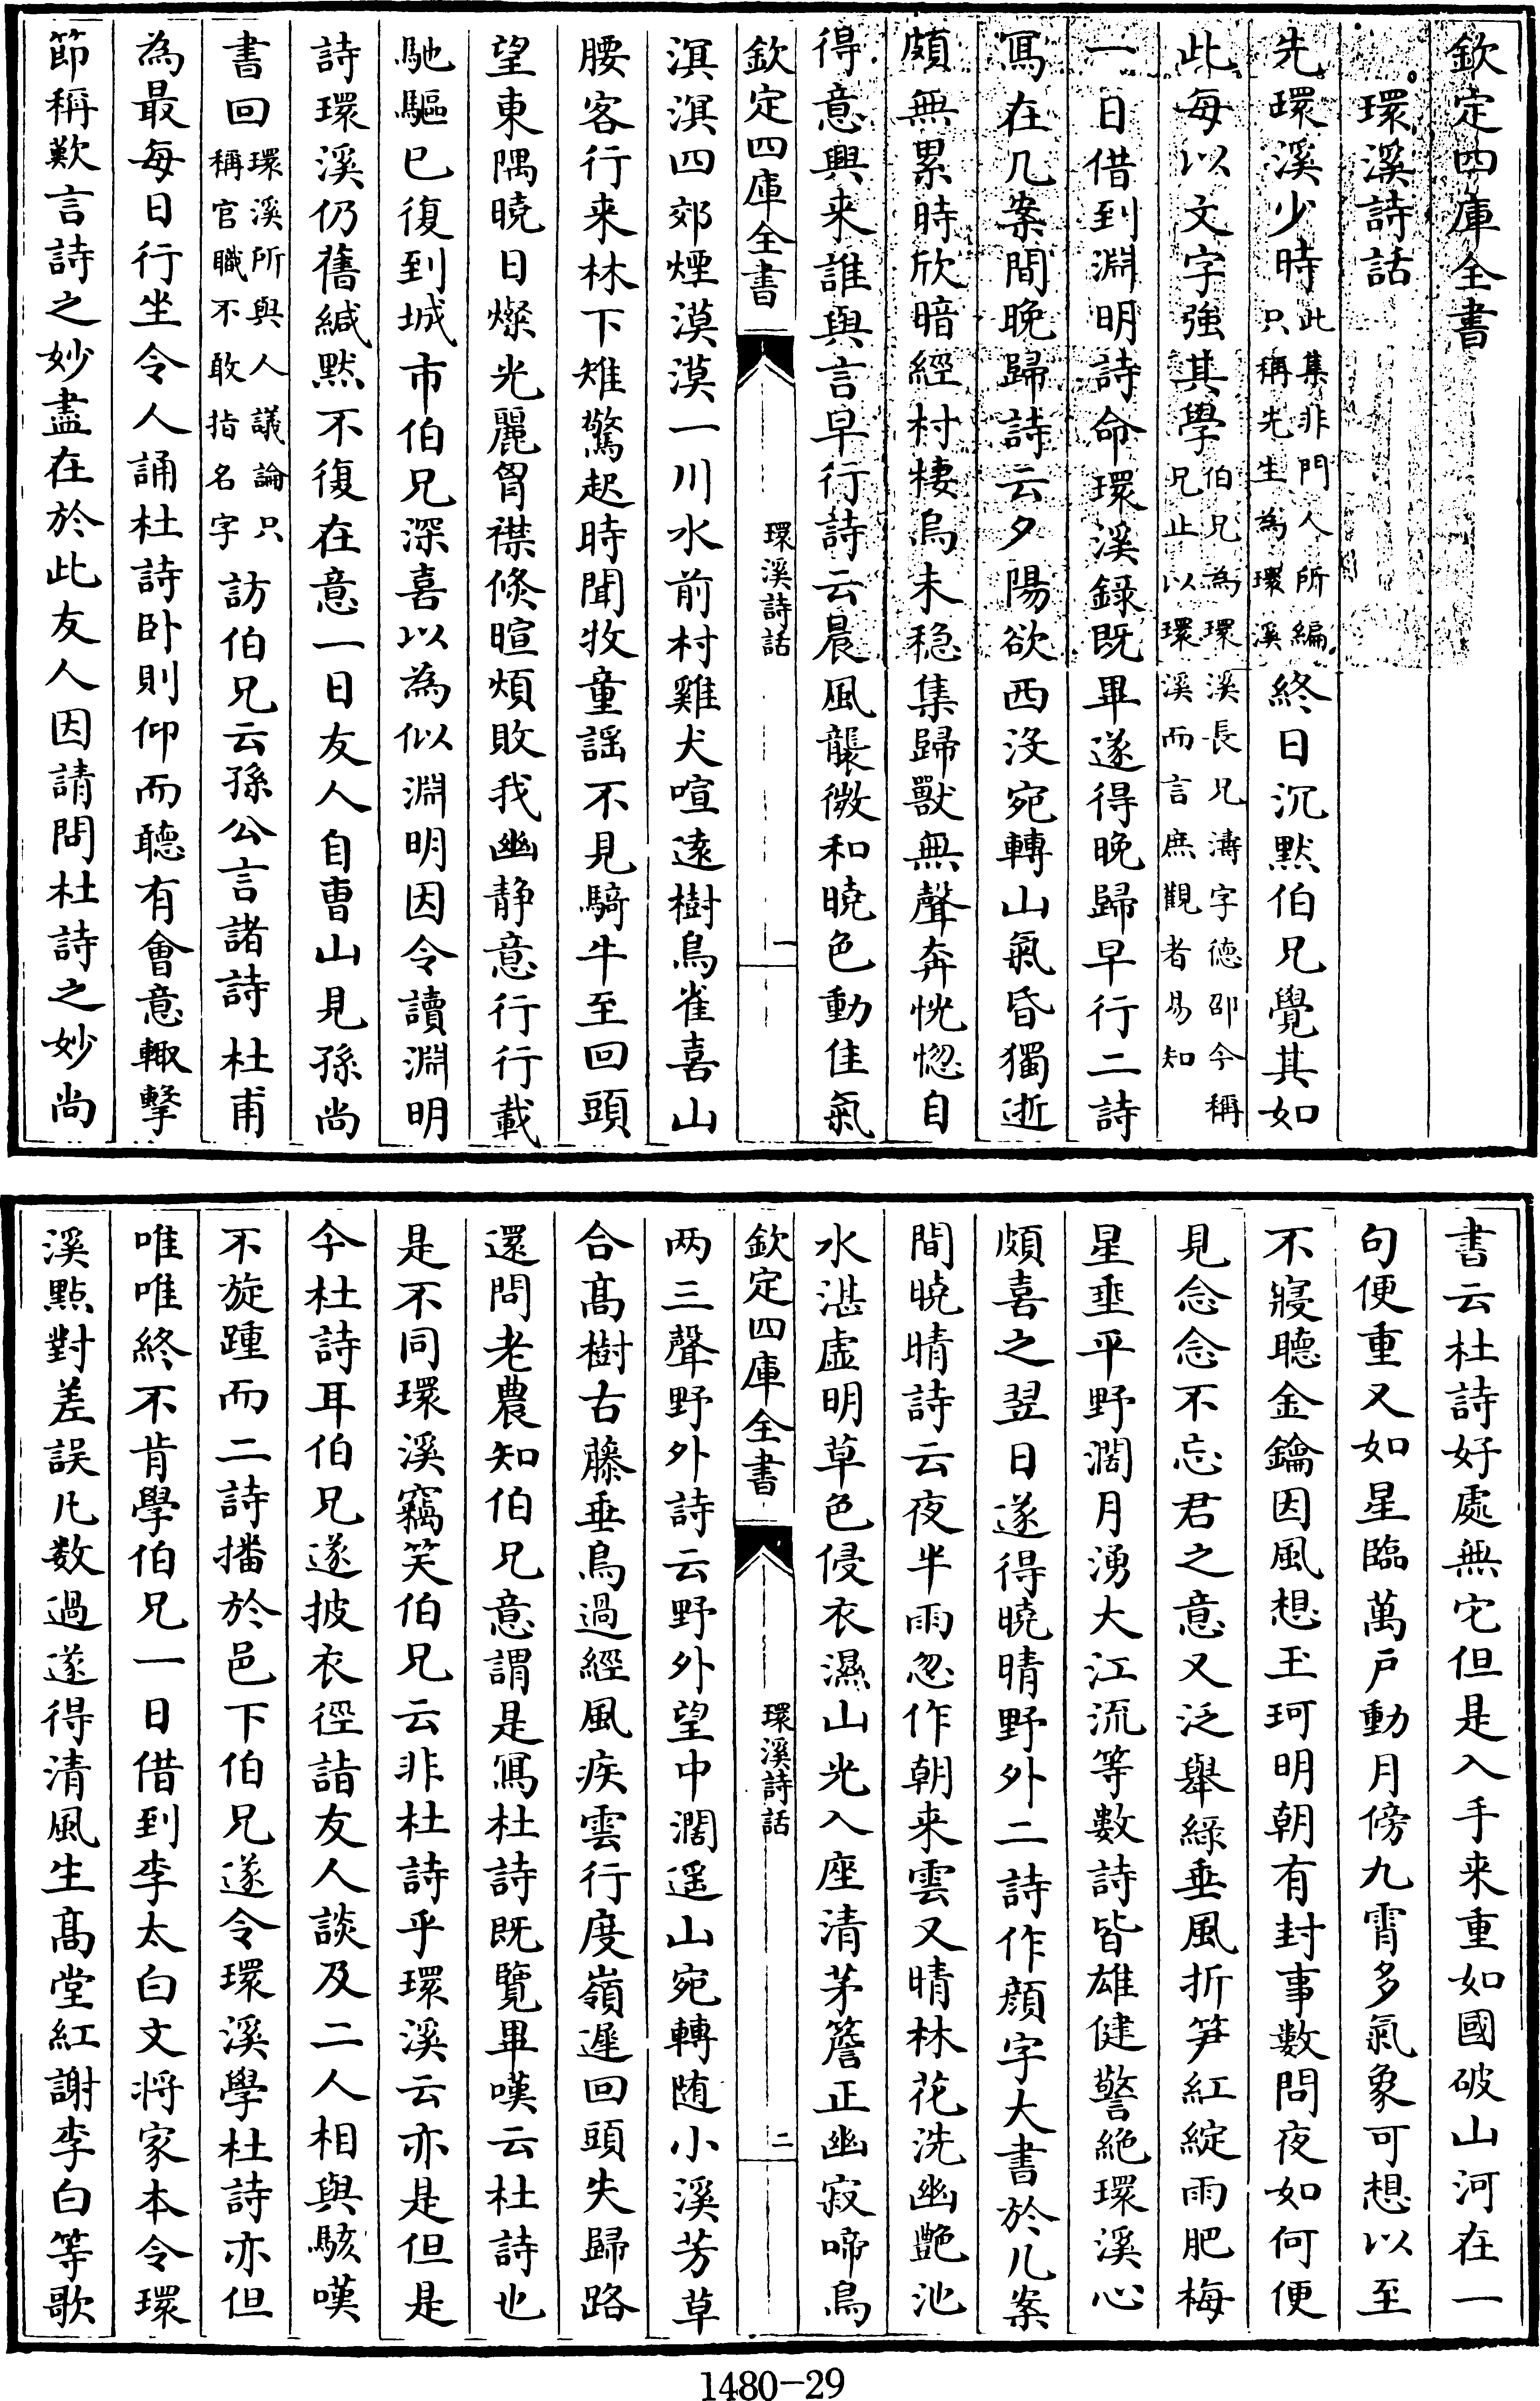 欽定四庫全書
環溪詩話
先環溪少時此集非門人所編只稱先生為環溪終日沉默伯兄覺其如
此每以文字強其學伯兄為環溪長兄濤字德邵今稱兄止以環溪而言庶觀者易知
一日借到淵明詩命環溪録既畢遂得晚歸早行二詩
寫在几案間晚歸詩云夕陽欲西沒宛轉山氣昏獨逝
頗無累時欣暗經村棲烏未穏集歸獸無聲奔恍惚自
得意興来誰與言早行詩云晨風襲微和曉色動佳氣
欽定四庫全書
環溪詩話
一
溟溟四郊煙漠漠一川水前村雞犬喧遠樹鳥雀喜山
腰客行来林下雉驚起時聞牧童謡不見騎牛至回頭
望東隅曉日燦光麗胷襟倐暄煩敗我幽静意行行載
馳驅已復到城市伯兄深喜以為似淵明因令讀淵明
詩環溪仍舊緘默不復在意一日友人自曹山見孫尚
書回環溪所與人議論只稱官職不敢指名字訪伯兄云孫公言諸詩杜甫
為最每日行坐令人誦杜詩卧則仰而聽有會意輙擊
節稱歎言詩之妙盡在於此友人因請問杜詩之妙尚
書云杜詩好處無它但是入手来重如國破山河在一
句便重又如星臨萬戸動月傍九霄多氣象可想以至
不寢聽金鑰因風想玉珂明朝有封事數問夜如何便
見念念不忘君之意又泛舉緑垂風折笋紅綻雨肥梅
星垂平野濶月湧大江流等數詩皆雄健警絶環溪心
頗喜之翌日遂得曉晴野外二詩作顔字大書於几案
間曉晴詩云夜半雨忽作朝来雲又晴林花洗幽艶池
水湛虚明草色侵衣濕山光入座清茅簷正幽寂啼鳥
欽定四庫全書
環溪詩話
二
两三聲野外詩云野外望中濶遥山宛轉随小溪芳草
合高樹古藤垂鳥過經風疾雲行度嶺遲回頭失歸路
還問老農知伯兄意謂是寫杜詩既覽畢嘆云杜詩也
是不同環溪竊笑伯兄云非杜詩乎環溪云亦是但是
今杜詩耳伯兄遂披衣徑詣友人談及二人相與駭嘆
不旋踵而二詩播於邑下伯兄遂令環溪學杜詩亦但
唯唯終不肯學伯兄一日借到李太白文将家本令環
溪點對差誤凡数過遂得清風生高堂紅謝李白等歌
1480-29